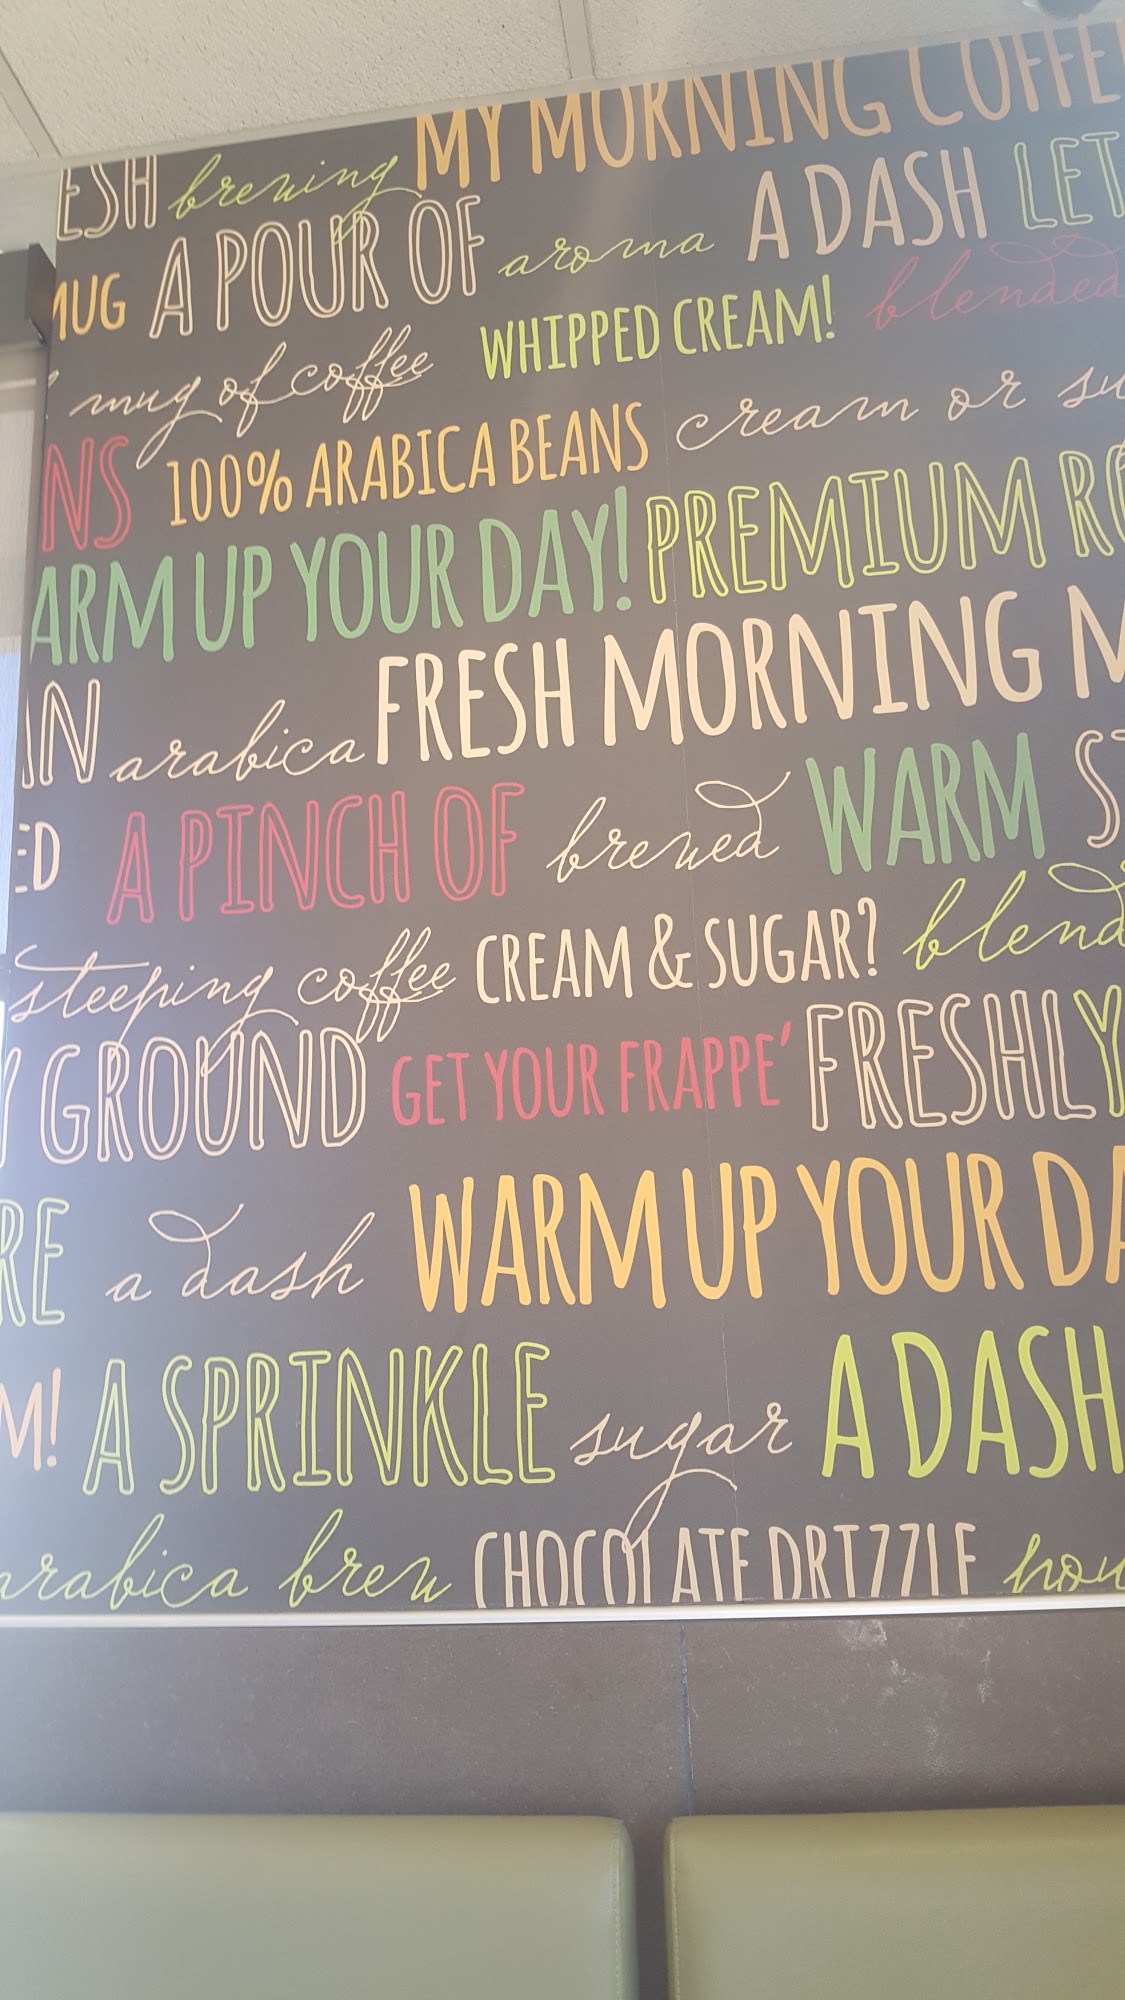 ESH brewing MY MORNING COFFEE
MUG A POUR OF aroma A DASH LET
mug of coffee WHIPPED CREAM! blended
NS 100% ARABICA BEANS cream or su
ARM UP YOUR DAY! PREMIUM RO
AN arabica FRESH MORNING M
ED A PINCH OF brewed WARM ST
steeping coffee CREAM & SUGAR? blend
Y GROUND GET YOUR FRAPPE' FRESHLY
RE a dash WARM UP YOUR DA
M! A SPRINKLE sugar A DASH
arabica brew CHOCOLATE DRIZZLE hou